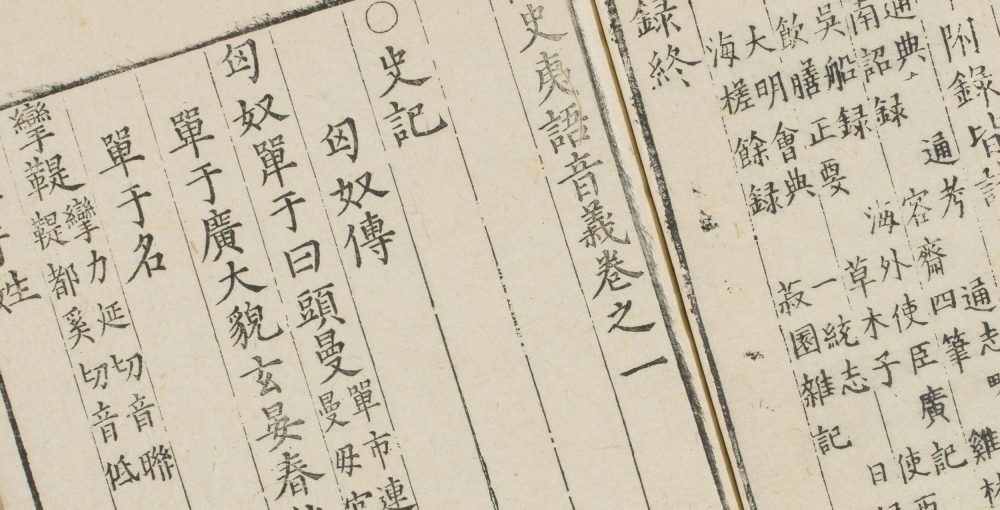 附錄皆
通典 通考 通志
南詔録 容齋四筆 雞林
吳船録 海外使臣廣記
飲膳正要 草木子 使西
大明會典 一統志 日
海槎餘録 菽園雜記
録終
史夷語音義卷之一
○史記
匈奴傳
匈奴單于曰頭曼 單市連
曼毋官
單于廣大貌玄晏春
單于名
攣鞮 攣力延切音聯
鞮都奚切音低
姓